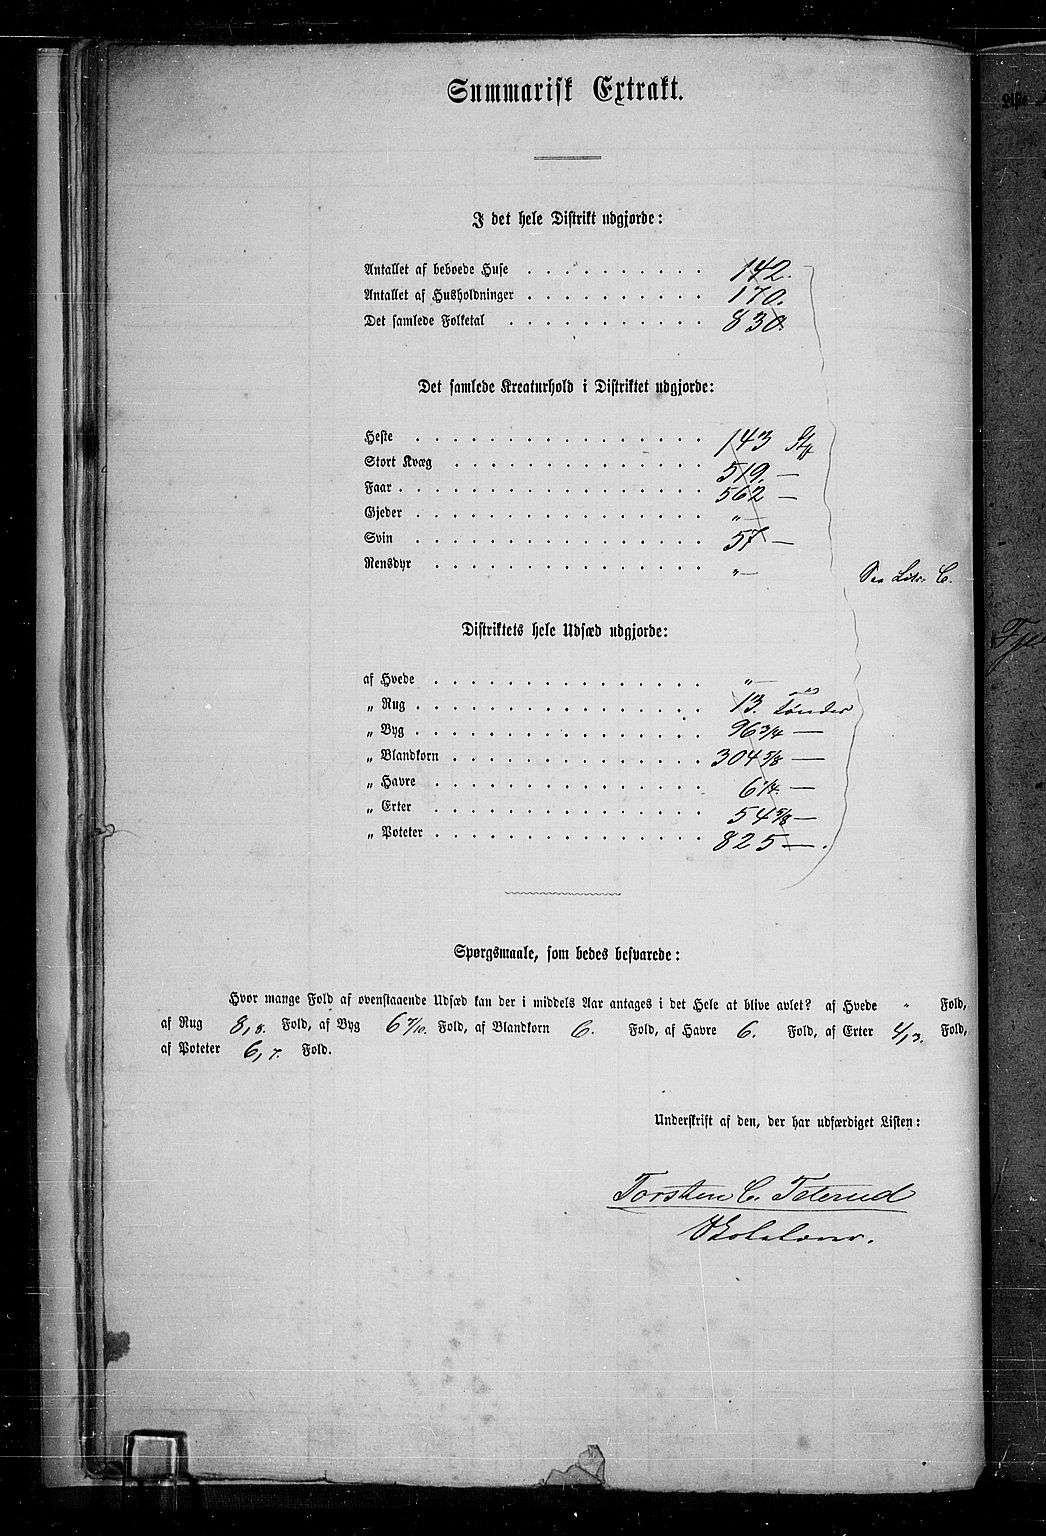 Summarisk Extrakt.
I det hele Distrikt udgjorde:
Antallet af beboede Huse . . . . . . . . . . 142.
Antallet af Husholdninger . . . . . . . . . . 170.
Det samlede Folketal . . . . . . . . . . . 830.
Det samlede Kreaturhold i Distriktet udgjorde:
Heste . . . . . . . . . . . . . . . . 143 Stk
Stort Kvæg . . . . . . . . . . . . . . 519. —
Faar . . . . . . . . . . . . . . . . . 562 —
Gjeder . . . . . . . . . . . . . . . „ —
Svin . . . . . . . . . . . . . . . . 57 —
Rensdyr . . . . . . . . . . . . . . . „ —
Se Litr. C.
Distriktets hele Udsæd udgjorde:
af Hvede . . . . . . . . . . . . . . . „ —
„ Rug . . . . . . . . . . . . . . . . 13. Tønder
„ Byg . . . . . . . . . . . . . . . . 96 3/4 —
„ Blandkorn . . . . . . . . . . . . . . 304 5/8 —
„ Havre . . . . . . . . . . . . . . . 6 1/4. —
„ Erter . . . . . . . . . . . . . . . 54 5/8 —
„ Poteter . . . . . . . . . . . . . . . 825 — .
Spørgsmaale, som bedes besvarede:
Hvor mange Fold af ovenstaaende Udsæd kan der i middels Aar antages i det Hele at blive avlet? af Hvede „ Fold,
af Rug 8,8. Fold, af Byg 6 7/10. Fold, af Blandkorn 6. Fold, af Havre 6. Fold, af Erter 4,3. Fold,
af Poteter 6,7. Fold.
Underskrift af den, der har udfærdiget Listen:
Torsten C. Teterud
Skolelærer.